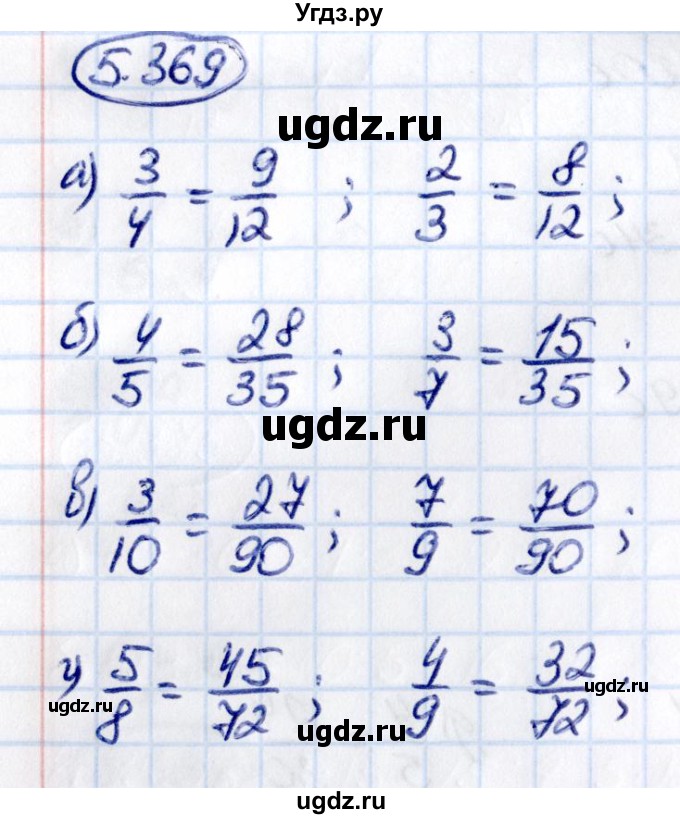 Угдз.ру
5.369
ugdz.ru
а) 3/4 = 9/12 ; 2/3 = 8/12 ;
б) 4/5 = 28/35 ; 3/7 = 15/35 ;
ugdz.ru
в) 3/10 = 27/90 ; 7/9 = 70/90 ;
г) 5/8 = 45/72 ; 4/9 = 32/72 ;
ugdz.ru
ugdz.ru
ugdz.ru
ugdz.ru